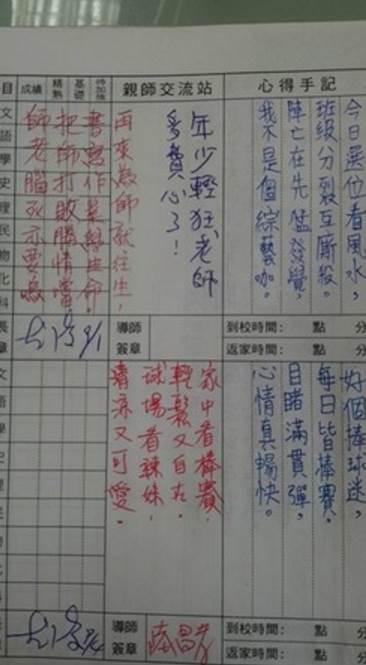 心得手記
今日選位看風水，
班級分裂互廝殺。
陣亡在先猛發覺，
我不是個綜藝咖。
親師交流站
年少輕狂，老師
多費心了！
再來為師就往生，
書寫作業與生命，
把師打敗勝情當
師老腦死亦要
待加強
基礎
精熟
成績
目
文
語
學
史
理
民
物
化
科
長
章
到校時間： 點 分
返家時間： 點 分
導師
簽章
9/1
好個棒球迷，
每日皆棒賽，
目睹滿貫彈，
心情真暢快。
家中看棒賽，
輕鬆又自在。
球場看辣妹，
清涼又可愛。
到校時間： 點 分
返家時間： 點
導師
簽章